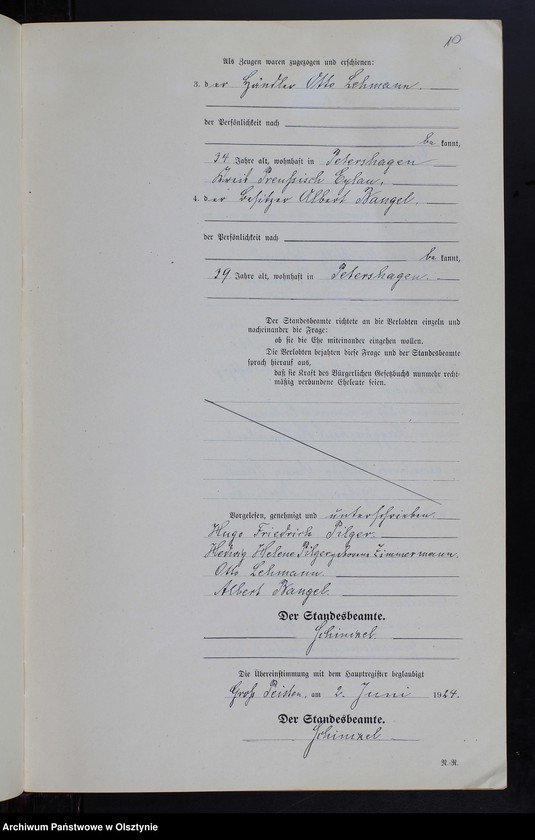 10
Als Zeugen waren zugezogen und erschienen:
3. der Händler Otto Lehmann.
der Persönlichkeit nach
be kannt,
34 Jahre alt, wohnhaft in Petershagen
Kreis Preußisch Eylau.
4. der Besitzer Albert Wangel.
der Persönlichkeit nach
be kannt,
39 Jahre alt, wohnhaft in Petershagen.
Der Standesbeamte richtete an die Verlobten einzeln und
nacheinander die Frage:
ob sie die Ehe miteinander eingehen wollen.
Die Verlobten bejahten diese Frage und der Standesbeamte
sprach hierauf aus,
daß sie kraft des Bürgerlichen Gesetzbuchs nunmehr recht-
mäßig verbundene Eheleute seien.
Vorgelesen, genehmigt und unterschrieben.
Hugo Friedrich Pilger.
Hedwig Helene Pilger geborene Zimmermann.
Otto Lehmann.
Albert Wangel.
Der Standesbeamte.
Schinkel
Die Übereinstimmung mit dem Hauptregister beglaubigt
Groß Peisten, am 2. Juni 1924.
Der Standesbeamte.
Schinkel
Archiwum Państwowe w Olsztynie